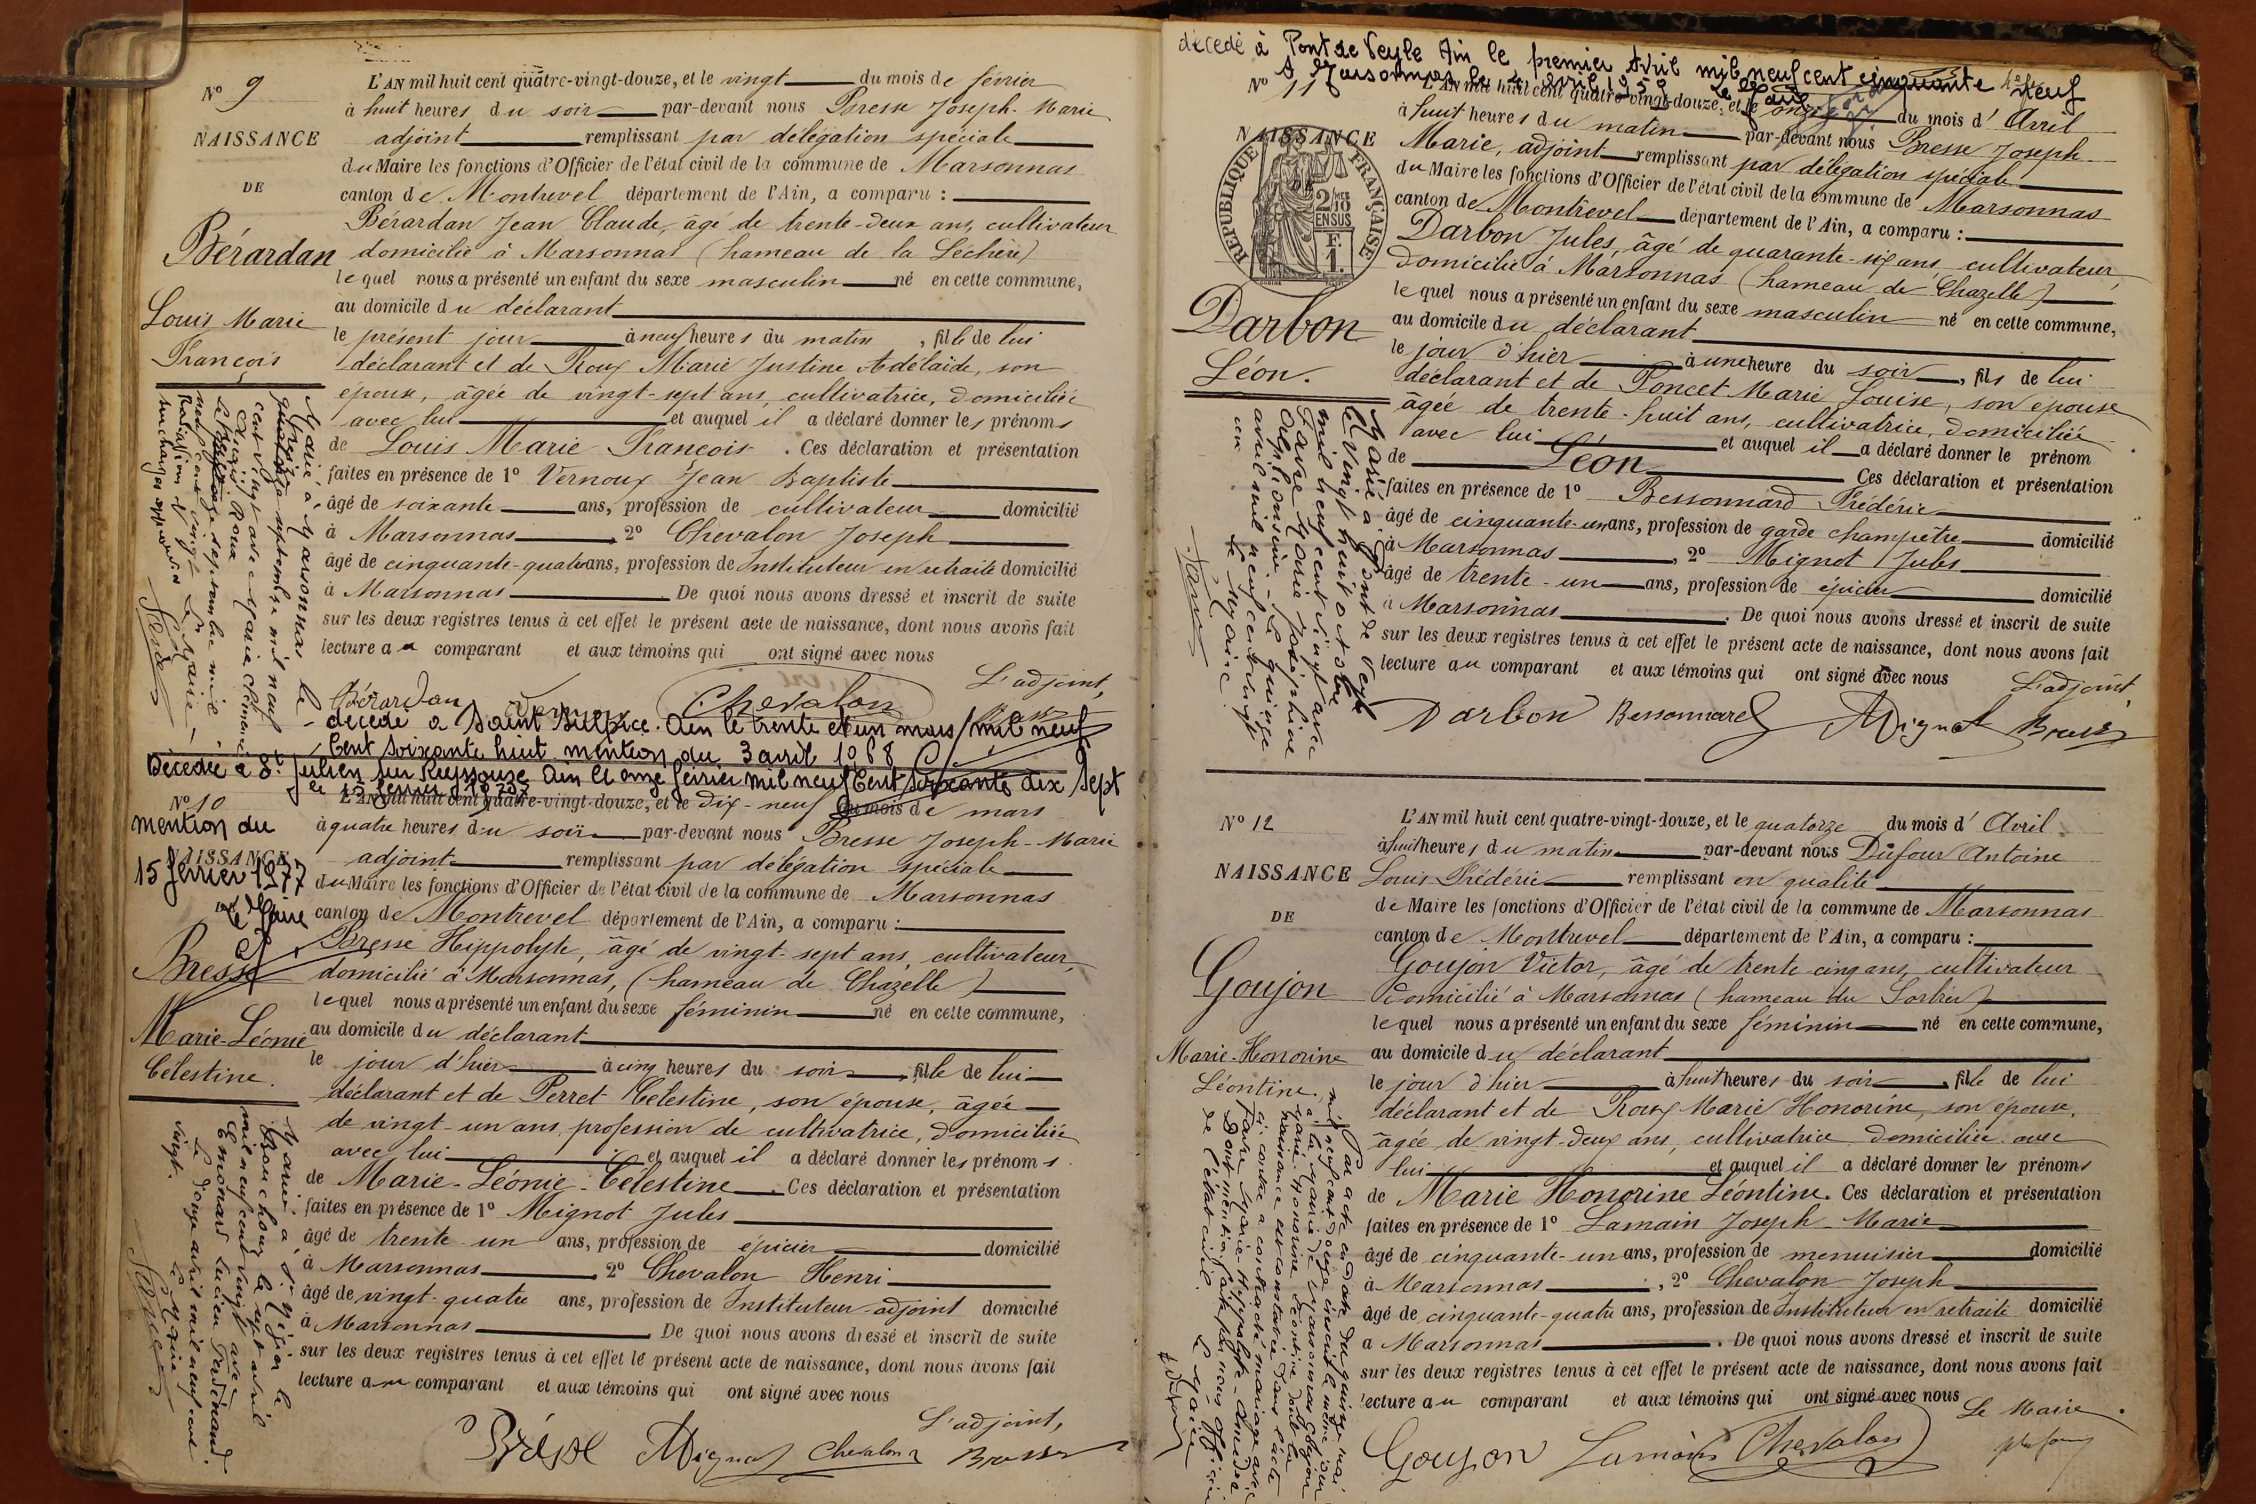 N° 9
NAISSANCE
DE
Bérardan
Louis Marie
François
L'AN mil huit cent quatre-vingt-douze, et le vingt du mois de février
à huit heures du soir par-devant nous Bresse Joseph-Marie
adjoint remplissant par délégation spéciale
du Maire les fonctions d'Officier de l'état civil de la commune de Marsonnas
canton de Montrevel département de l'Ain, a comparu :
Bérardan Jean Claude, âgé de trente-deux ans, cultivateur
domicilié à Marsonnas (hameau de la Léchère)
lequel nous a présenté un enfant du sexe masculin né en cette commune,
au domicile du déclarant
le présent jour à neuf heures du matin, fils de lui
déclarant et de Roux Marie Justine Adélaïde, son
épouse, âgée de vingt-sept ans, cultivatrice, domiciliée
avec lui et auquel il a déclaré donner les prénoms
de Louis Marie François. Ces déclaration et présentation
faites en présence de 1° Vernoux Jean Baptiste
âgé de soixante ans, profession de cultivateur domicilié
à Marsonnas, 2° Chevalon Joseph
âgé de cinquante-quatre ans, profession de Instituteur en retraite domicilié
à Marsonnas De quoi nous avons dressé et inscrit de suite
sur les deux registres tenus à cet effet le présent acte de naissance, dont nous avons fait
lecture au comparant et aux témoins qui ont signé avec nous
L'adjoint,
Bérardan Vernoux Chevalon Bresse
Marié à Marsonnas le
septembre mil neuf
cent vingt avec Marie
Le Maire
décédé à Saint Sulpice Ain le trente et un mars mil neuf
Cent soixante huit mention du 3 avril 1968
Décédée à St Julien sur Reyssouze Ain le onze février mil neuf Cent soixante dix sept
le 15 février 1977
N° 10
mention du
NAISSANCE
15 février 1977
Le Maire
Bresse
Marie-Léonie
Célestine.
L'AN mil huit cent quatre-vingt-douze, et le dix-neuf du mois de mars
à quatre heures du soir par-devant nous Bresse Joseph-Marie
adjoint remplissant par délégation spéciale
du Maire les fonctions d'Officier de l'état civil de la commune de Marsonnas
canton de Montrevel département de l'Ain, a comparu :
Bresse Hippolyte, âgé de vingt-sept ans, cultivateur,
domicilié à Marsonnas, (hameau de Chazelle)
lequel nous a présenté un enfant du sexe féminin né en cette commune,
au domicile du déclarant
le jour d'hier à cinq heures du soir, fille de lui
déclarant et de Perret Célestine, son épouse, âgée
de vingt-un ans, profession de cultivatrice, domiciliée
avec lui et auquel il a déclaré donner les prénoms
de Marie-Léonie-Célestine. Ces déclaration et présentation
faites en présence de 1° Mignot Jules
âgé de trente-un ans, profession de épicier domicilié
à Marsonnas, 2° Chevalon Henri
âgé de vingt-quatre ans, profession de Instituteur-adjoint domicilié
à Marsonnas De quoi nous avons dressé et inscrit de suite
sur les deux registres tenus à cet effet le présent acte de naissance, dont nous avons fait
lecture au comparant et aux témoins qui ont signé avec nous
L'adjoint,
Bresse Mignot Chevalon Bresse
Mariée à Jayat le sept avril
mil neuf cent vingt avec
Lucien Ferdinand
Le douze avril mil neuf cent
vingt.
Le Maire
décédé à Pont de Veyle Ain le premier Avril mil neuf cent cinquante neuf
à Marsonnas le 4 avril 1959 Le Maire
N° 11
NAISSANCE
DE
RÉPUBLIQUE FRANÇAISE
2/10
EN SUS
F.
1.
Darbon
Léon.
L'AN mil huit cent quatre-vingt-douze, et le onze du mois d'Avril
à huit heures du matin par-devant nous Bresse Joseph
Marie, adjoint remplissant par délégation spéciale
du Maire les fonctions d'Officier de l'état civil de la commune de Marsonnas
canton de Montrevel département de l'Ain, a comparu :
Darbon Jules, âgé de quarante-six ans, cultivateur,
domicilié à Marsonnas (hameau de Chazelle)
lequel nous a présenté un enfant du sexe masculin né en cette commune,
au domicile du déclarant
le jour d'hier à une heure du soir, fils de lui
déclarant et de Poncet Marie Louise, son épouse
âgée de trente-huit ans, cultivatrice, domiciliée
avec lui et auquel il a déclaré donner le prénom
de Léon Ces déclaration et présentation
faites en présence de 1° Bessonnard Frédéric
âgé de cinquante-un ans, profession de garde champêtre domicilié
à Marsonnas, 2° Mignot Jules
âgé de trente-un ans, profession de épicier domicilié
à Marsonnas. De quoi nous avons dressé et inscrit de suite
sur les deux registres tenus à cet effet le présent acte de naissance, dont nous avons fait
lecture au comparant et aux témoins qui ont signé avec nous
L'adjoint,
Darbon Bessonnard Mignot Bresse
Marié à Pont de Veyle
le vingt huit octobre
mil neuf cent vingt avec
Favre Marie Joséphine
Le Maire
N° 12
NAISSANCE
DE
Goujon
Marie-Honorine
Léontine.
L'AN mil huit cent quatre-vingt-douze, et le quatorze du mois d'Avril
à huit heures du matin par-devant nous Dufour Antoine
Louis Frédéric remplissant en qualité
de Maire les fonctions d'Officier de l'état civil de la commune de Marsonnas
canton de Montrevel département de l'Ain, a comparu :
Goujon Victor, âgé de trente cinq ans, cultivateur
domicilié à Marsonnas (hameau du Sorbier)
lequel nous a présenté un enfant du sexe féminin né en cette commune,
au domicile du déclarant
le jour d'hier à huit heures du soir, fille de lui
déclarant et de Roux Marie Honorine, son épouse,
âgée de vingt-deux ans, cultivatrice domiciliée avec
lui et auquel il a déclaré donner les prénoms
de Marie Honorine Léontine. Ces déclaration et présentation
faites en présence de 1° Lamain Joseph Marie
âgé de cinquante-un ans, profession de menuisier domicilié
à Marsonnas, 2° Chevalon Joseph
âgé de cinquante-quatre ans, profession de Instituteur en retraite domicilié
à Marsonnas. De quoi nous avons dressé et inscrit de suite
sur les deux registres tenus à cet effet le présent acte de naissance, dont nous avons fait
lecture au comparant et aux témoins qui ont signé avec nous
Le Maire
Goujon Lamain Chevalon Dufour
Par acte en date du quinze mai
mil neuf cent douze
à la mairie de Marsonnas Goujon
Marie-Honorine Léontine dont la
naissance est constatée dans l'acte
ci-contre a contracté mariage avec
Favre Marie Hippolyte-Amédée
Dont mention faite par nous officier
de l'état civil.
Le Maire